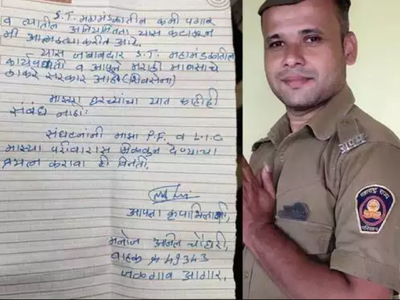 व त्यातील S.T. महामंडळातील कमी पगार
अनियमितता यास कंटाळून
मी आत्महत्या करीत आहे.
यास जबाबदार S.T. महामंडळातील
कार्यपध्दती व आपले मराठी माणसाचे
ठाकरे सरकार आहे (शिवसेना)
माझ्या घरच्यांचा यात काहीही
संबंध नाही.
संघटनांनी माझा P.F. व L.I.C
माझ्या परिवारास मिळवून देण्याचा
प्रयत्न करावा ही विनंती.
आपला कृपाभिलाषी,
मनोज अनिल चौधरी,
वाहक 49343
जळगाव आगार,